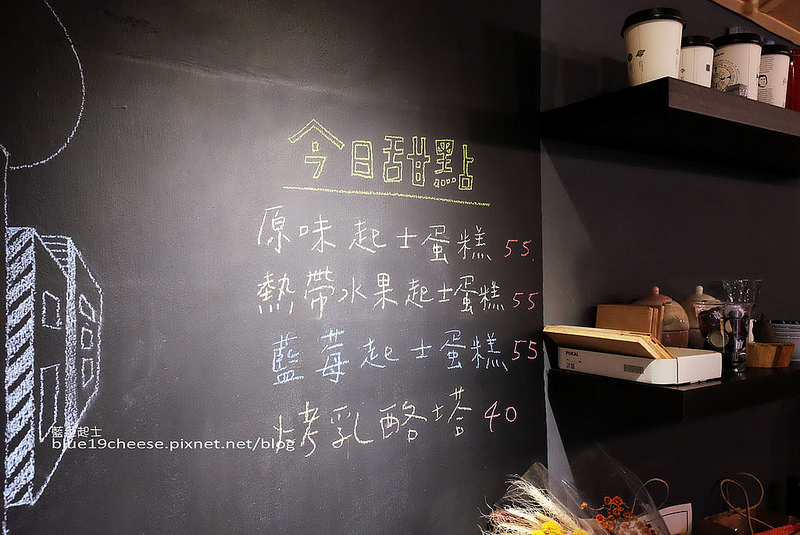 今日甜點
原味起士蛋糕 55.
熱帶水果起士蛋糕 55
藍莓起士蛋糕 55
烤乳酪塔 40
blue19cheese.pixnet.net/blog